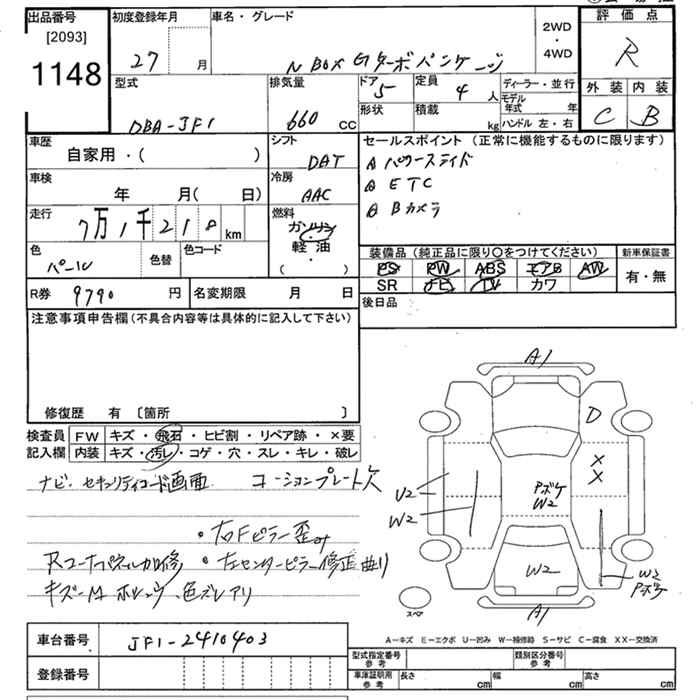 出品番号 初度登録年月 車名・グレード 評価点
[2093] 27 月 N BOX Gターボパッケージ 2WD・4WD R
1148
型式 排気量 ドア 定員 ディーラー・並行 外装 内装
DBA-JF1 660 CC 5 4 人 モデル年式 年 C B
形状 積載 kg ハンドル 左・右
車歴 シフト セールスポイント(正常に機能するものに限ります)
自家用・( ) DAT A パワースライド
車検 冷房 A ETC
年 月( 日) AAC A Bカメラ
走行 燃料
7万1千218 km ガソリン・軽油・( )
色 色替 色コード 装備品(純正品に限り○をつけてください) 新車保証書
パール PS PW ABS エアB AW 有・無
SR ナビ TV カワ
R券 9790 円 名変期限 月 日 後日品
注意事項申告欄(不具合内容等は具体的に記入して下さい)
修復歴 有 〔箇所 〕
検査員 FW キズ・飛石・ヒビ割・リペア跡・×要
記入欄 内装 キズ・汚レ・コゲ・穴・スレ・キレ・破レ
ナビ.セキュリティコード画面 コーションプレート欠
・右Fピラー歪み
・左センターピラー修正曲り
キズ 色ズレアリ
A1
D
X
X
U2
W2
Pボケ
W2
W2
W2
Pボケ
A1
スペア
A-キズ E-エクボ U-凹み W-補修跡 S-サビ C-腐食 XX-交換済
車台番号 JF1-2410403
登録番号
型式指定番号 参考 類別区分番号 参考
車庫証明用 参考 長さ cm 幅 cm 高さ cm